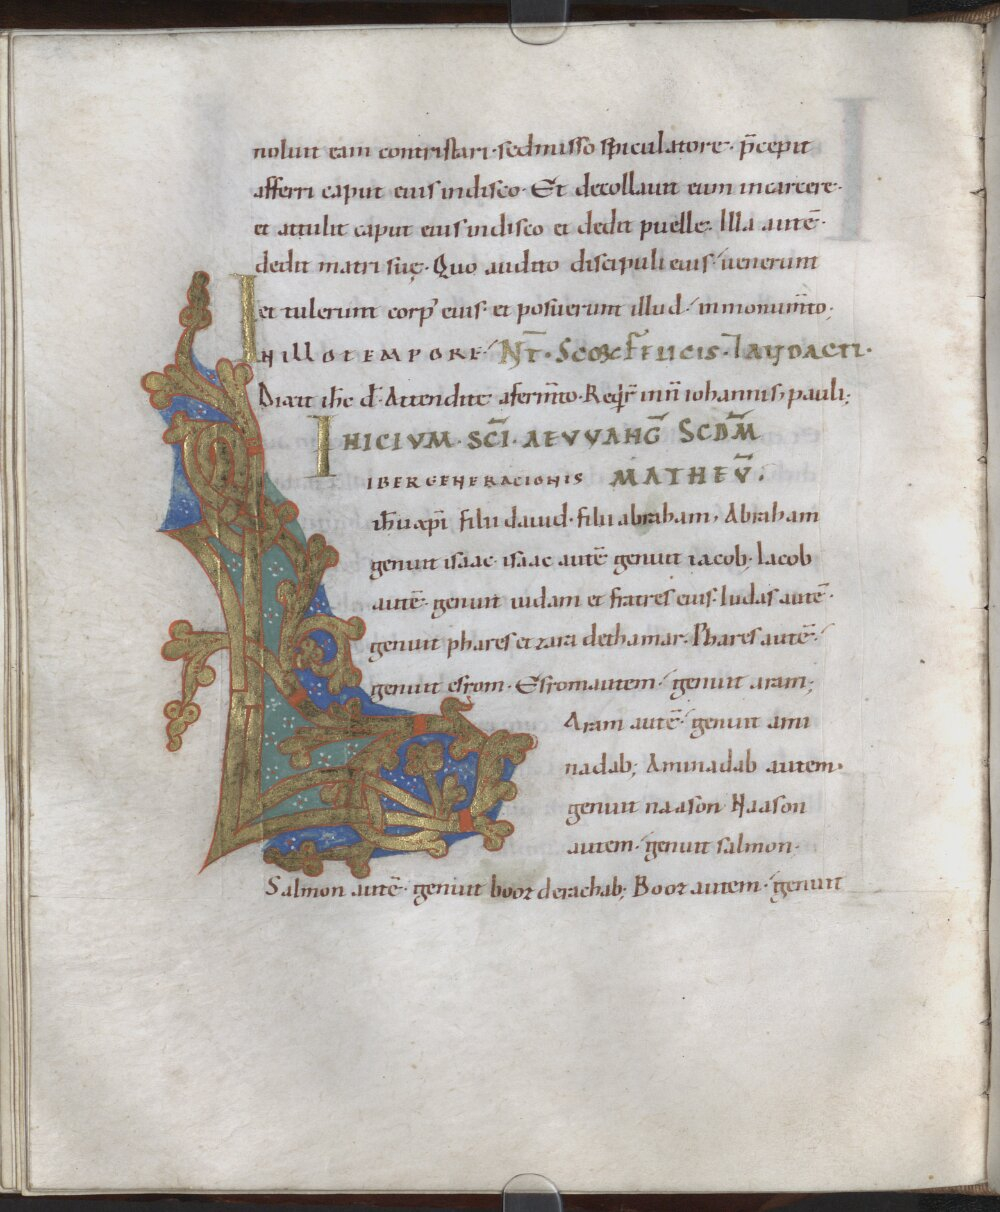 noluit eam contristari· sed misso spiculatore· p̄cepit
afferri caput eius in disco· Et decollauit eum in carcere·
et attulit caput eius in disco et dedit puelle· Illa autē·
dedit matri suę· Quo audito discipuli eius· uenerunt
et tulerunt corp' eius· et posuerunt illud· in monum̄to;
IN ILLO TEMPORE· NT̄· SCOR FELICIS·
Dixit ihc d̄· Attendite a ferm̄to· Reqr̄ in ñ iohannis, pauli;
INICIVM· SC̄I· AEVVANḠ SCDM̄
LIBER GENERACIONIS MATHEV̄·
ih̄u xp̄i, filii dauid· filii abraham; Abraham
genuit isaac· isaac autē genuit iacob; Iacob
autē· genuit iudam et fratres eius· Iudas autē·
genuit phares et zara de thamar· Phares autē·
genuit esrom· Esrom autem· genuit aram;
Aram autē· genuit ami
nadab; Aminadab autem·
genuit naason Naason
autem· genuit salmon·
Salmon autē· genuit booz de rachab; Booz autem· genuit